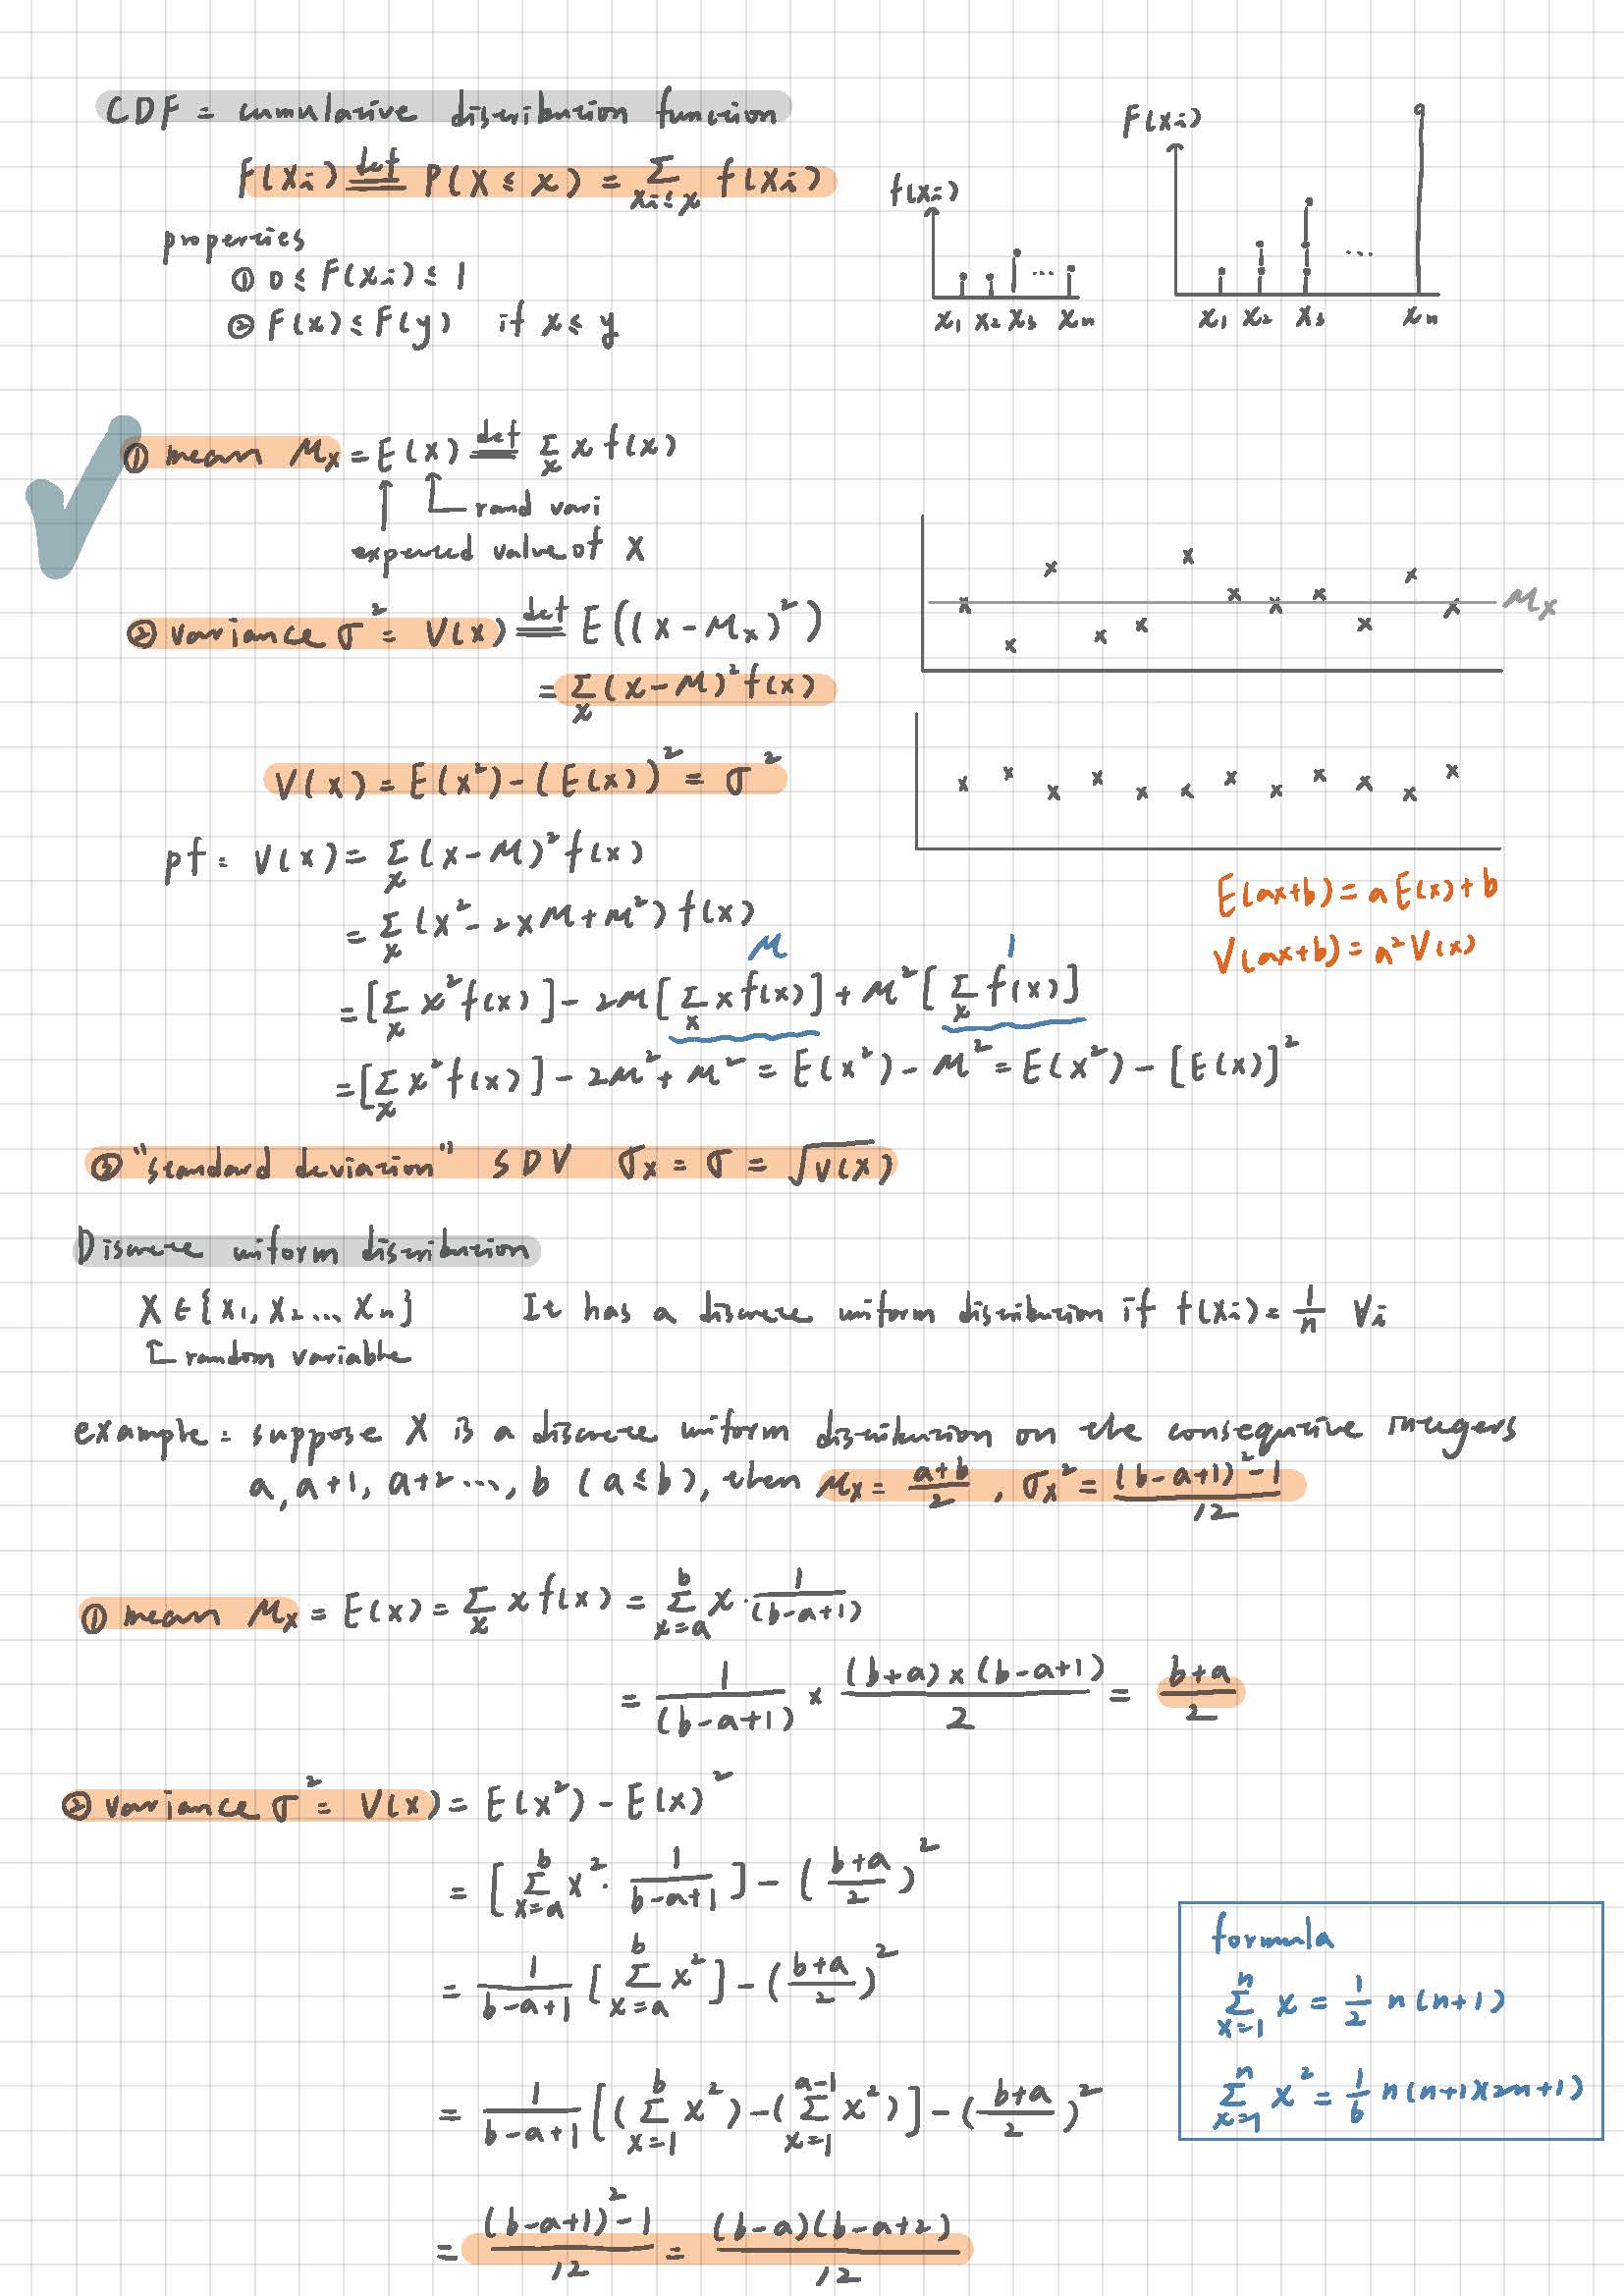 CDF = cumulative distribution function
F(xi) def= P(X ≤ x) = Σ_{xi≤x} f(xi)
properties
① 0 ≤ F(xi) ≤ 1
② F(x) ≤ F(y) if x ≤ y
f(xi)
x1 x2 x3 ... xn
F(xi)
...
x1 x2 x3 xn
① mean Mx = E(x) def= Σ_x x f(x)
rand vari
expected value of X
② variance σ² = V(x) def= E((x-Mx)²)
= Σ_x (x-M)² f(x)
Mx
V(x) = E(x²) - (E(x))² = σ²
pf = V(x) = Σ_x (x-M)² f(x)
= Σ_x (x² - 2xM + M²) f(x)
M 1
= [Σ_x x² f(x)] - 2M [Σ_x x f(x)] + M² [Σ_x f(x)]
= [Σ_x x² f(x)] - 2M² + M² = E(x²) - M² = E(x²) - [E(x)]²
E(ax+b) = aE(x) + b
V(ax+b) = a² V(x)
③ "standard deviation" SDV σx = σ = √V(x)
Discrete uniform distribution
X ∈ {x1, x2 ... xn} It has a discrete uniform distribution if f(xi) = 1/n ∀i
random variable
example = suppose X is a discrete uniform distribution on the consequtive integers
a, a+1, a+2 ..., b (a ≤ b), then Mx = (a+b)/2, σx² = ((b-a+1)²-1)/12
① mean Mx = E(x) = Σ_x x f(x) = Σ_{x=a}^{b} x · 1/(b-a+1)
= 1/(b-a+1) × ((b+a)×(b-a+1))/2 = (b+a)/2
② variance σ² = V(x) = E(x²) - E(x)²
= [Σ_{x=a}^{b} x² · 1/(b-a+1)] - ((b+a)/2)²
= 1/(b-a+1) [Σ_{x=a}^{b} x²] - ((b+a)/2)²
= 1/(b-a+1) [(Σ_{x=1}^{b} x²) - (Σ_{x=1}^{a-1} x²)] - ((b+a)/2)²
= ((b-a+1)²-1)/12 = ((b-a)(b-a+2))/12
formula
Σ_{x=1}^{n} x = 1/2 n(n+1)
Σ_{x=1}^{n} x² = 1/6 n(n+1)(2n+1)